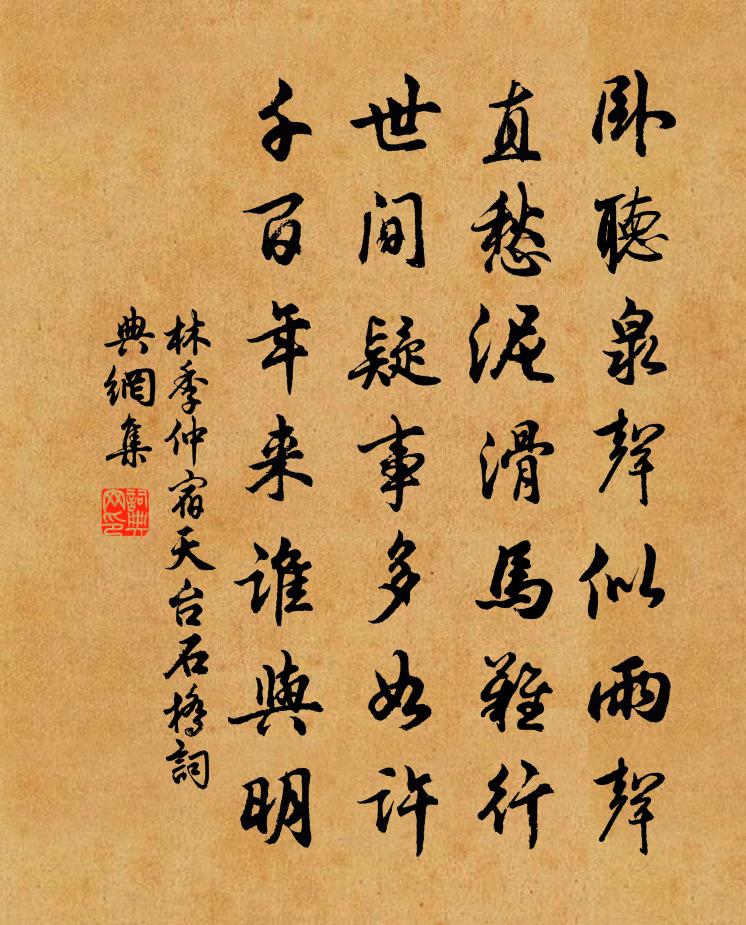 卧聽泉聲似雨聲
直愁泥滑馬難行
世间疑事多如許
千百年来誰與明
林季仲宿天台石橋詞
典網集
詞典
网印